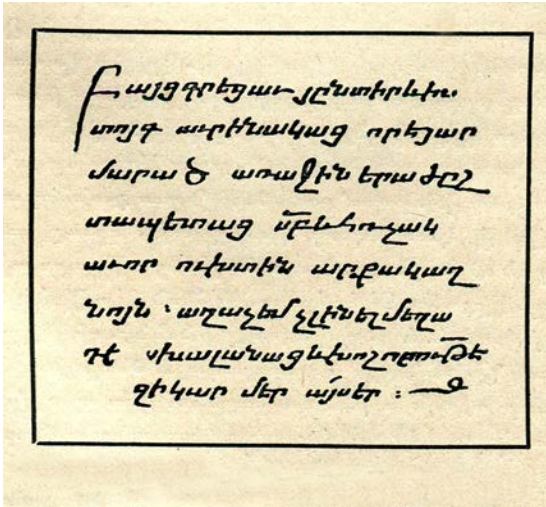 Բայց գրեցաւ յընտիր և ի ս
տոյգ աւրինակաց որ ե շար
մարած առաջին երաժըշ
տապետաց սբ և հռչակ
աւոր ուխտին արքակաղ
նոյն ՝ աղաչեմ չլինել մեղա
դէ սխալանացն և խոշորութե
զի կար մեր այսէր ։